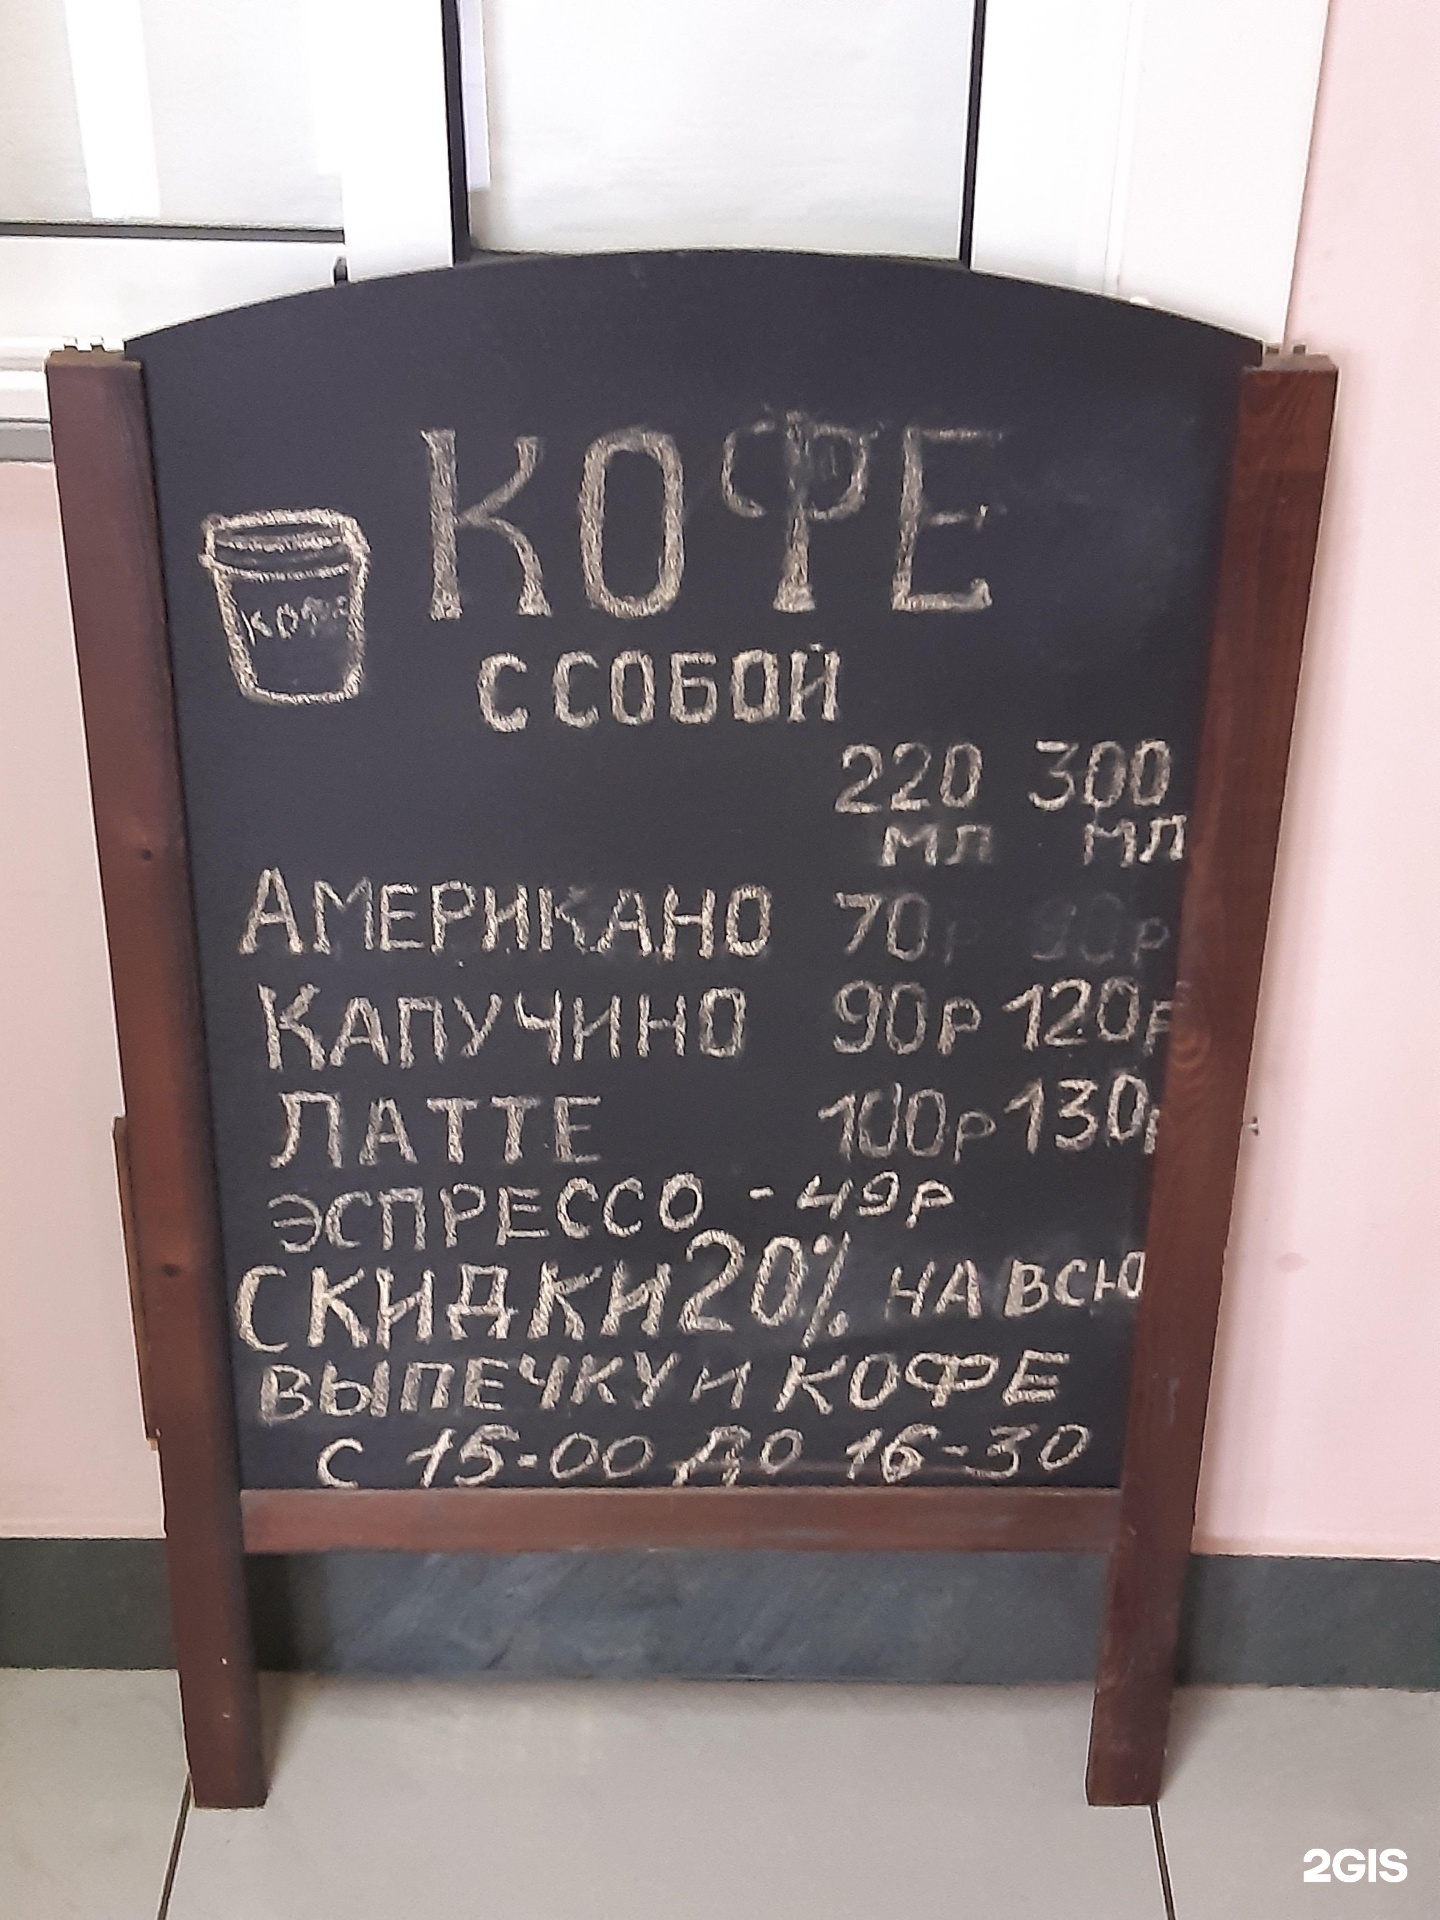 КОФЕ
КОФЕ
С СОБОЙ
220 300
МЛ МЛ
АМЕРИКАНО 70р 90р
КАПУЧИНО 90р 120р
ЛАТТЕ 100р 130р
ЭСПРЕССО - 49р
СКИДКИ 20% НА ВСЮ
ВЫПЕЧКУ И КОФЕ
С 15-00 ДО 16-30
2GIS